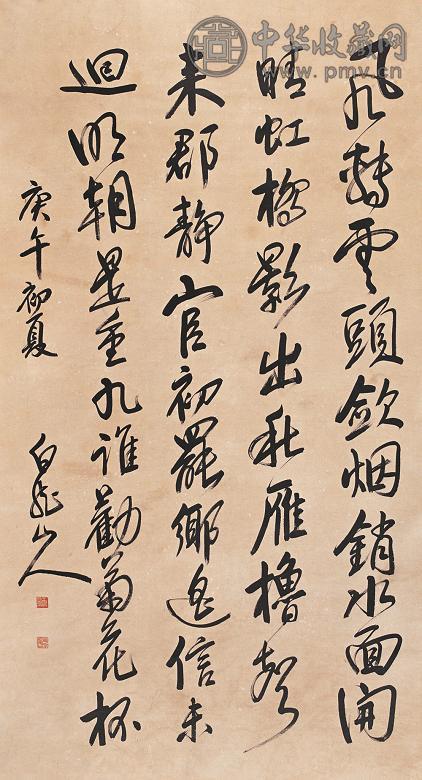 中华收藏网
www.pmv.cn
風轉雲頭斂烟銷水面開
晴虹橋影出秋雁櫓聲
來郡靜官初罷鄉遥信未
迴明朝是重九誰勸菊花杯
庚午初夏
白龍山人